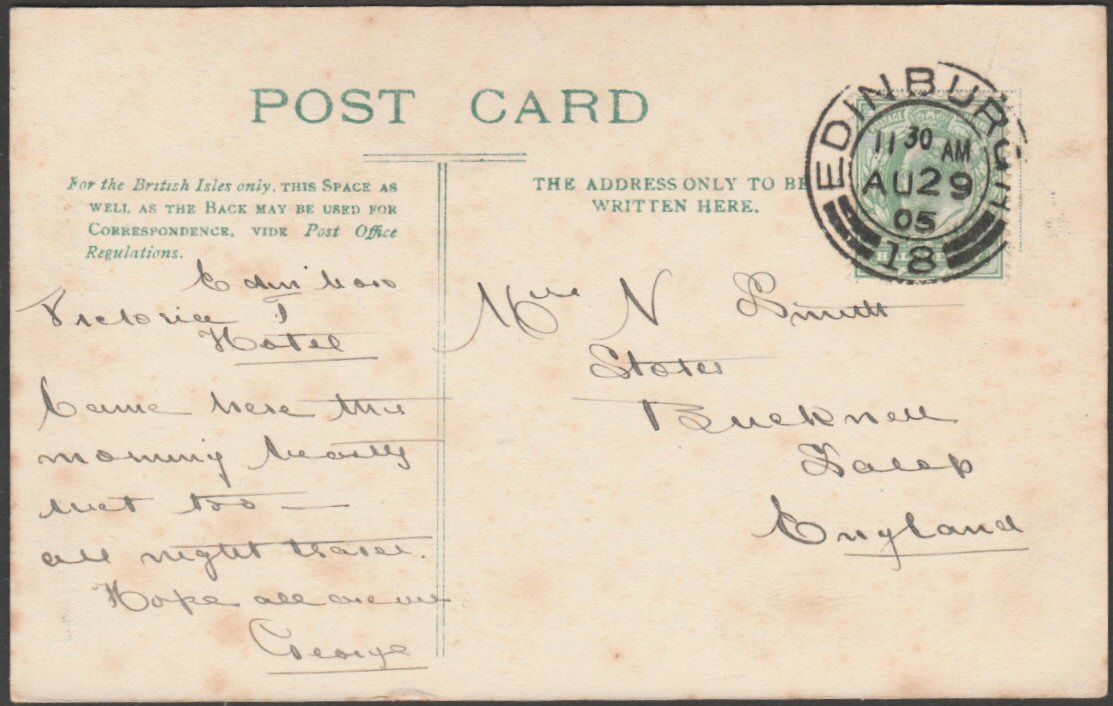 POST CARD
For the British Isles only, THIS SPACE AS
WELL AS THE BACK MAY BE USED FOR
CORRESPONDENCE, VIDE Post Office
Regulations.
THE ADDRESS ONLY TO BE
WRITTEN HERE.
EDINBURGH
11 30 AM
AU 29
05
18
Victoria T
Hotel
Came here this
morning beastly
wet too —
all night travel.
Hope all are well
George
N Smith
Stores
Bucknell
Salop
England